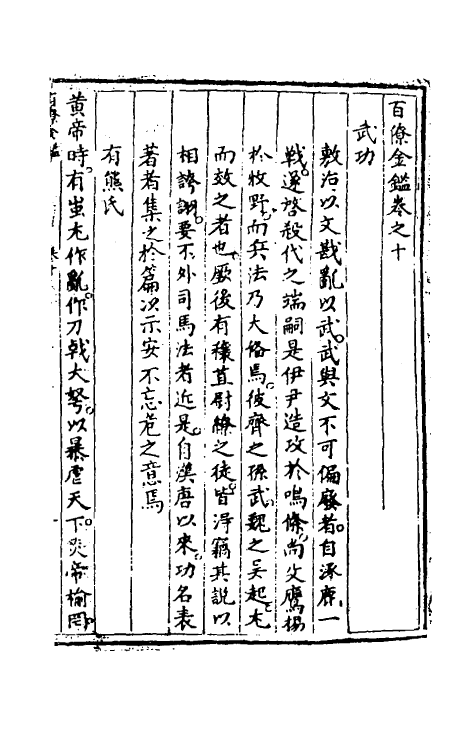 百僚金鑑卷之十
武功
敷治以文戡亂以武武與文不可偏廢者自涿鹿一
戰遂啓殺代之端嗣是伊尹造攻於鳴條尚父鷹揚
於牧野而兵法乃大俻焉彼齊之孫武魏之吳起尤
而效之者也厥後有穰苴尉繚之徒皆得竊其說以
相誇詡要不外司馬法者近是自漢唐以來功名表
著者集之於篇次示安不忘危之意焉
有熊氏
黃帝時有蚩尤作亂作刀戟大弩以暴虐天下炎帝榆罔